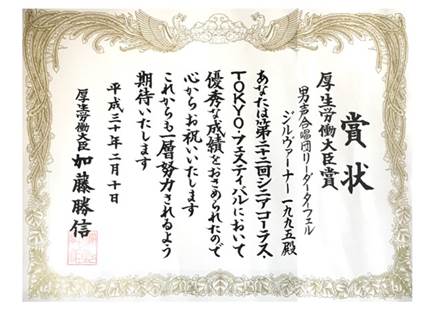 賞状
厚生労働大臣賞
男声合唱団リーダータイフェル
ジルヴァーナー一九九五殿
あなたは第二十二回シニアコーラス・
TOKYO・フェスティバルにおいて
優秀な成績をおさめられたので
心からお祝いいたします
これからも一層努力されるよう
期待いたします
平成三十年二月十日
厚生労働大臣 加藤勝信